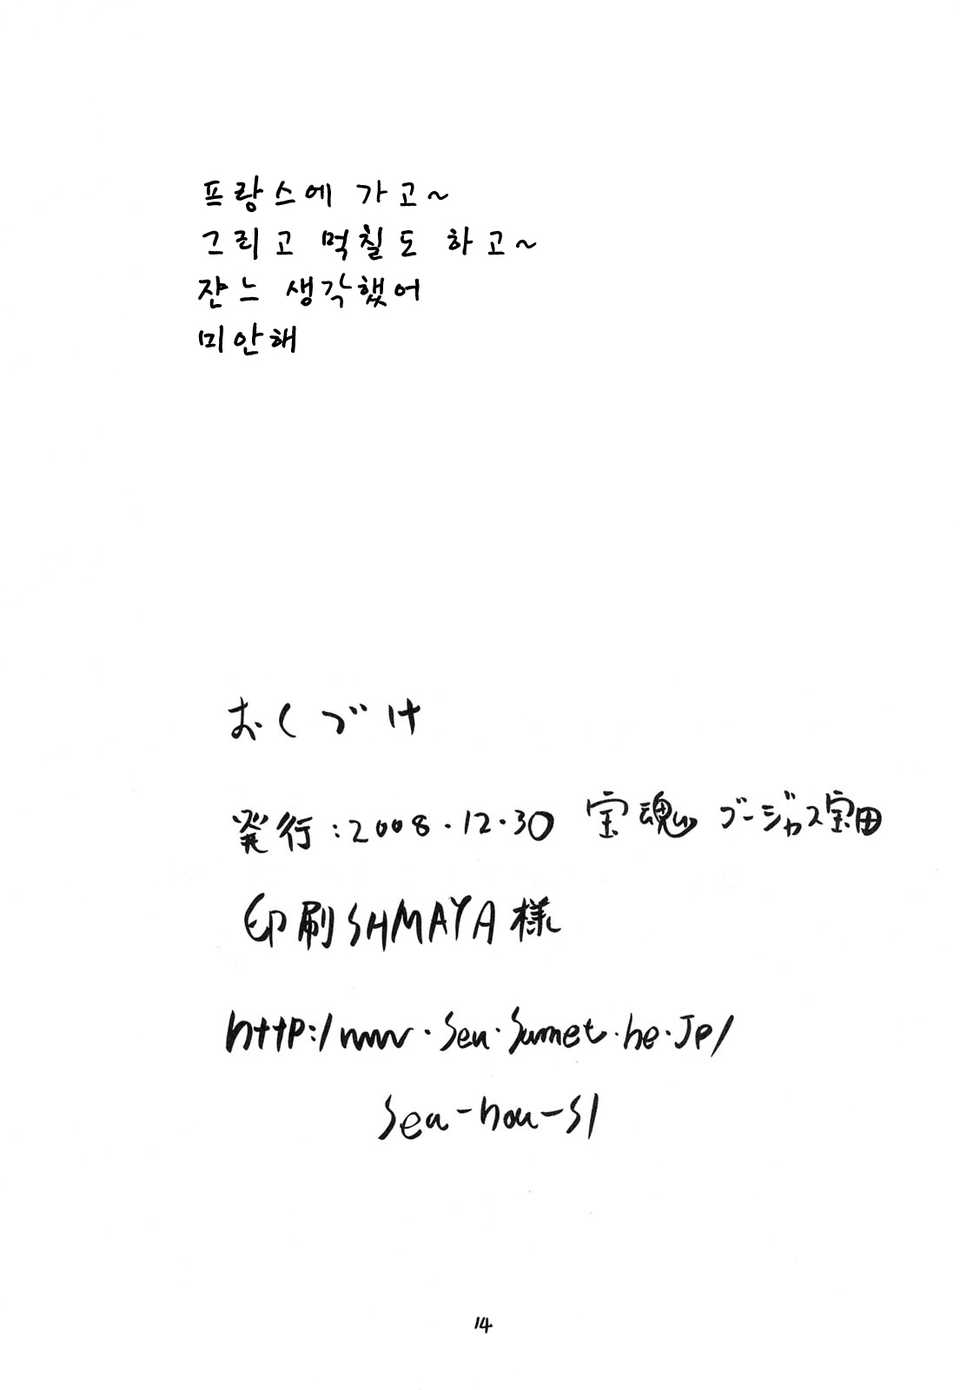 프랑스에 가고~
그리고 먹칠도 하고~
쟌느 생각했어
미안해
おくづけ
発行:2008.12.30 宝魂 ゴージャス宝田
印刷SHMAYA様
http:/www.sea.sannet.ne.jp/
sea-hou-s/
14